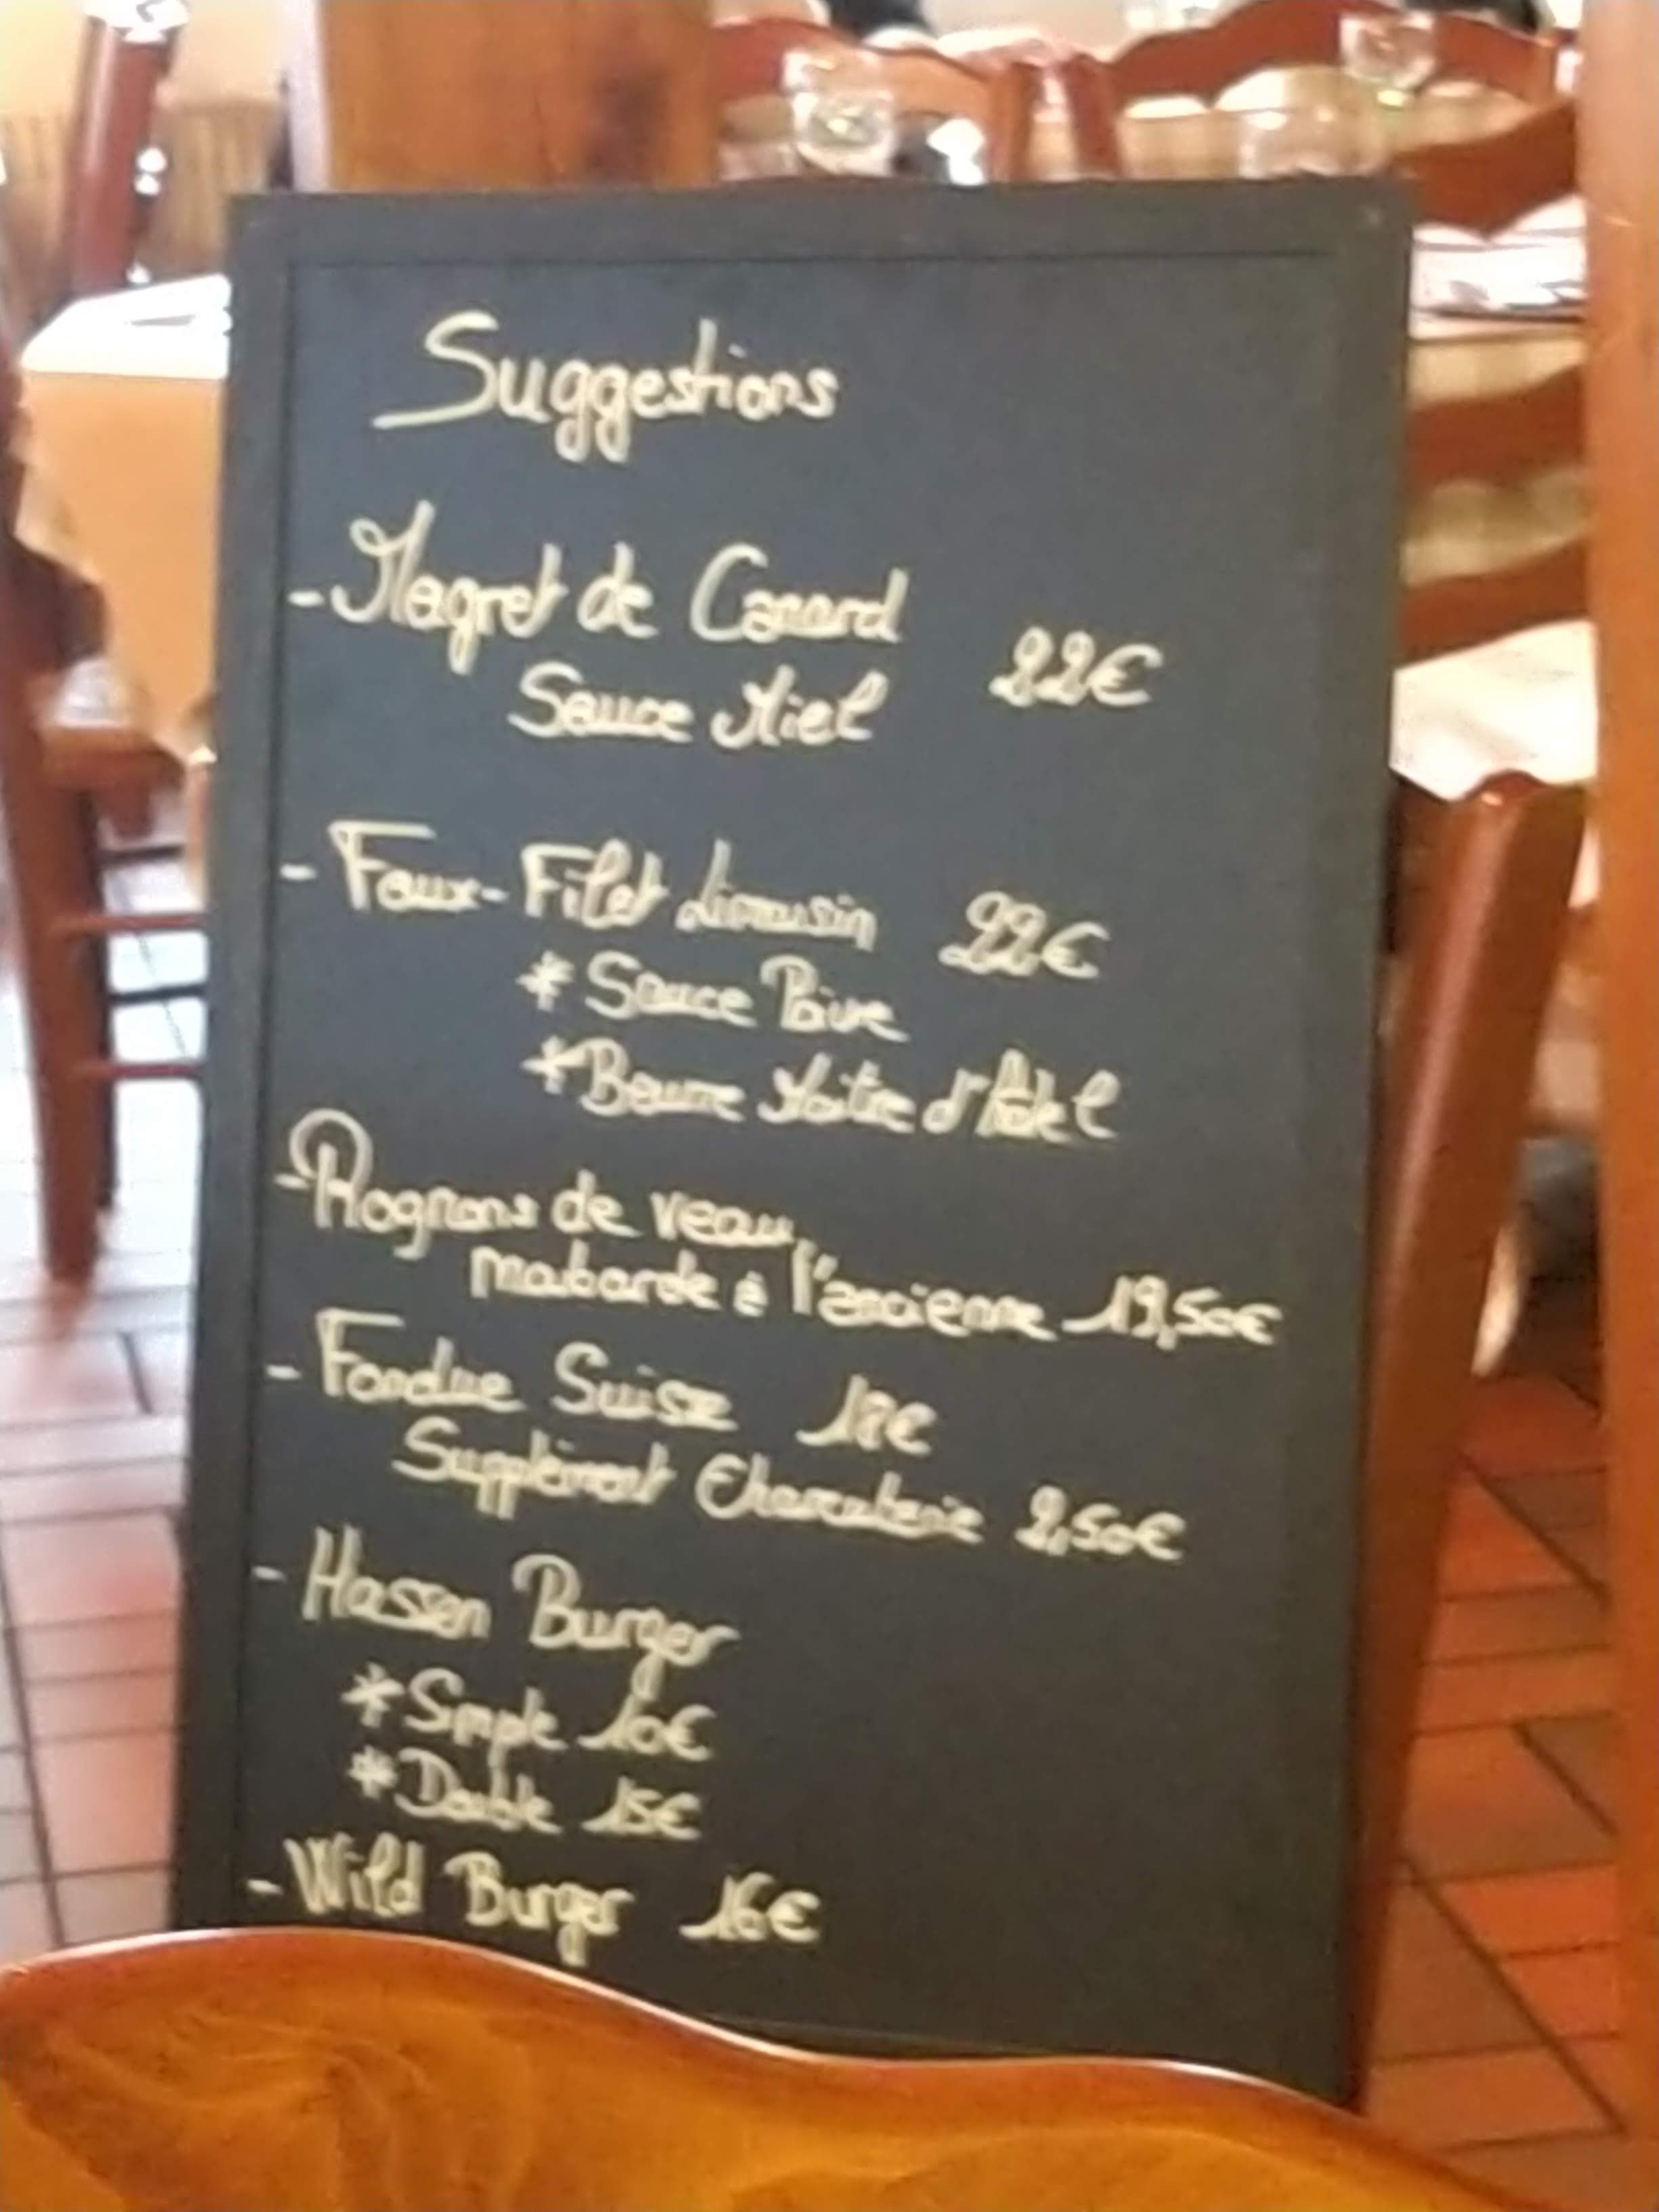 Suggestions
- Magret de Canard
Sauce Miel 22€
- Faux-Filet Limousin 22€
* Sauce Poivre
* Beurre Maître d'hôtel
- Rognons de veau,
moutarde à l'ancienne 19,50€
- Fondue Suisse 18€
Supplément Charcuterie 2,50€
- Hassen Burger
* Simple 10€
* Double 15€
- Wild Burger 16€